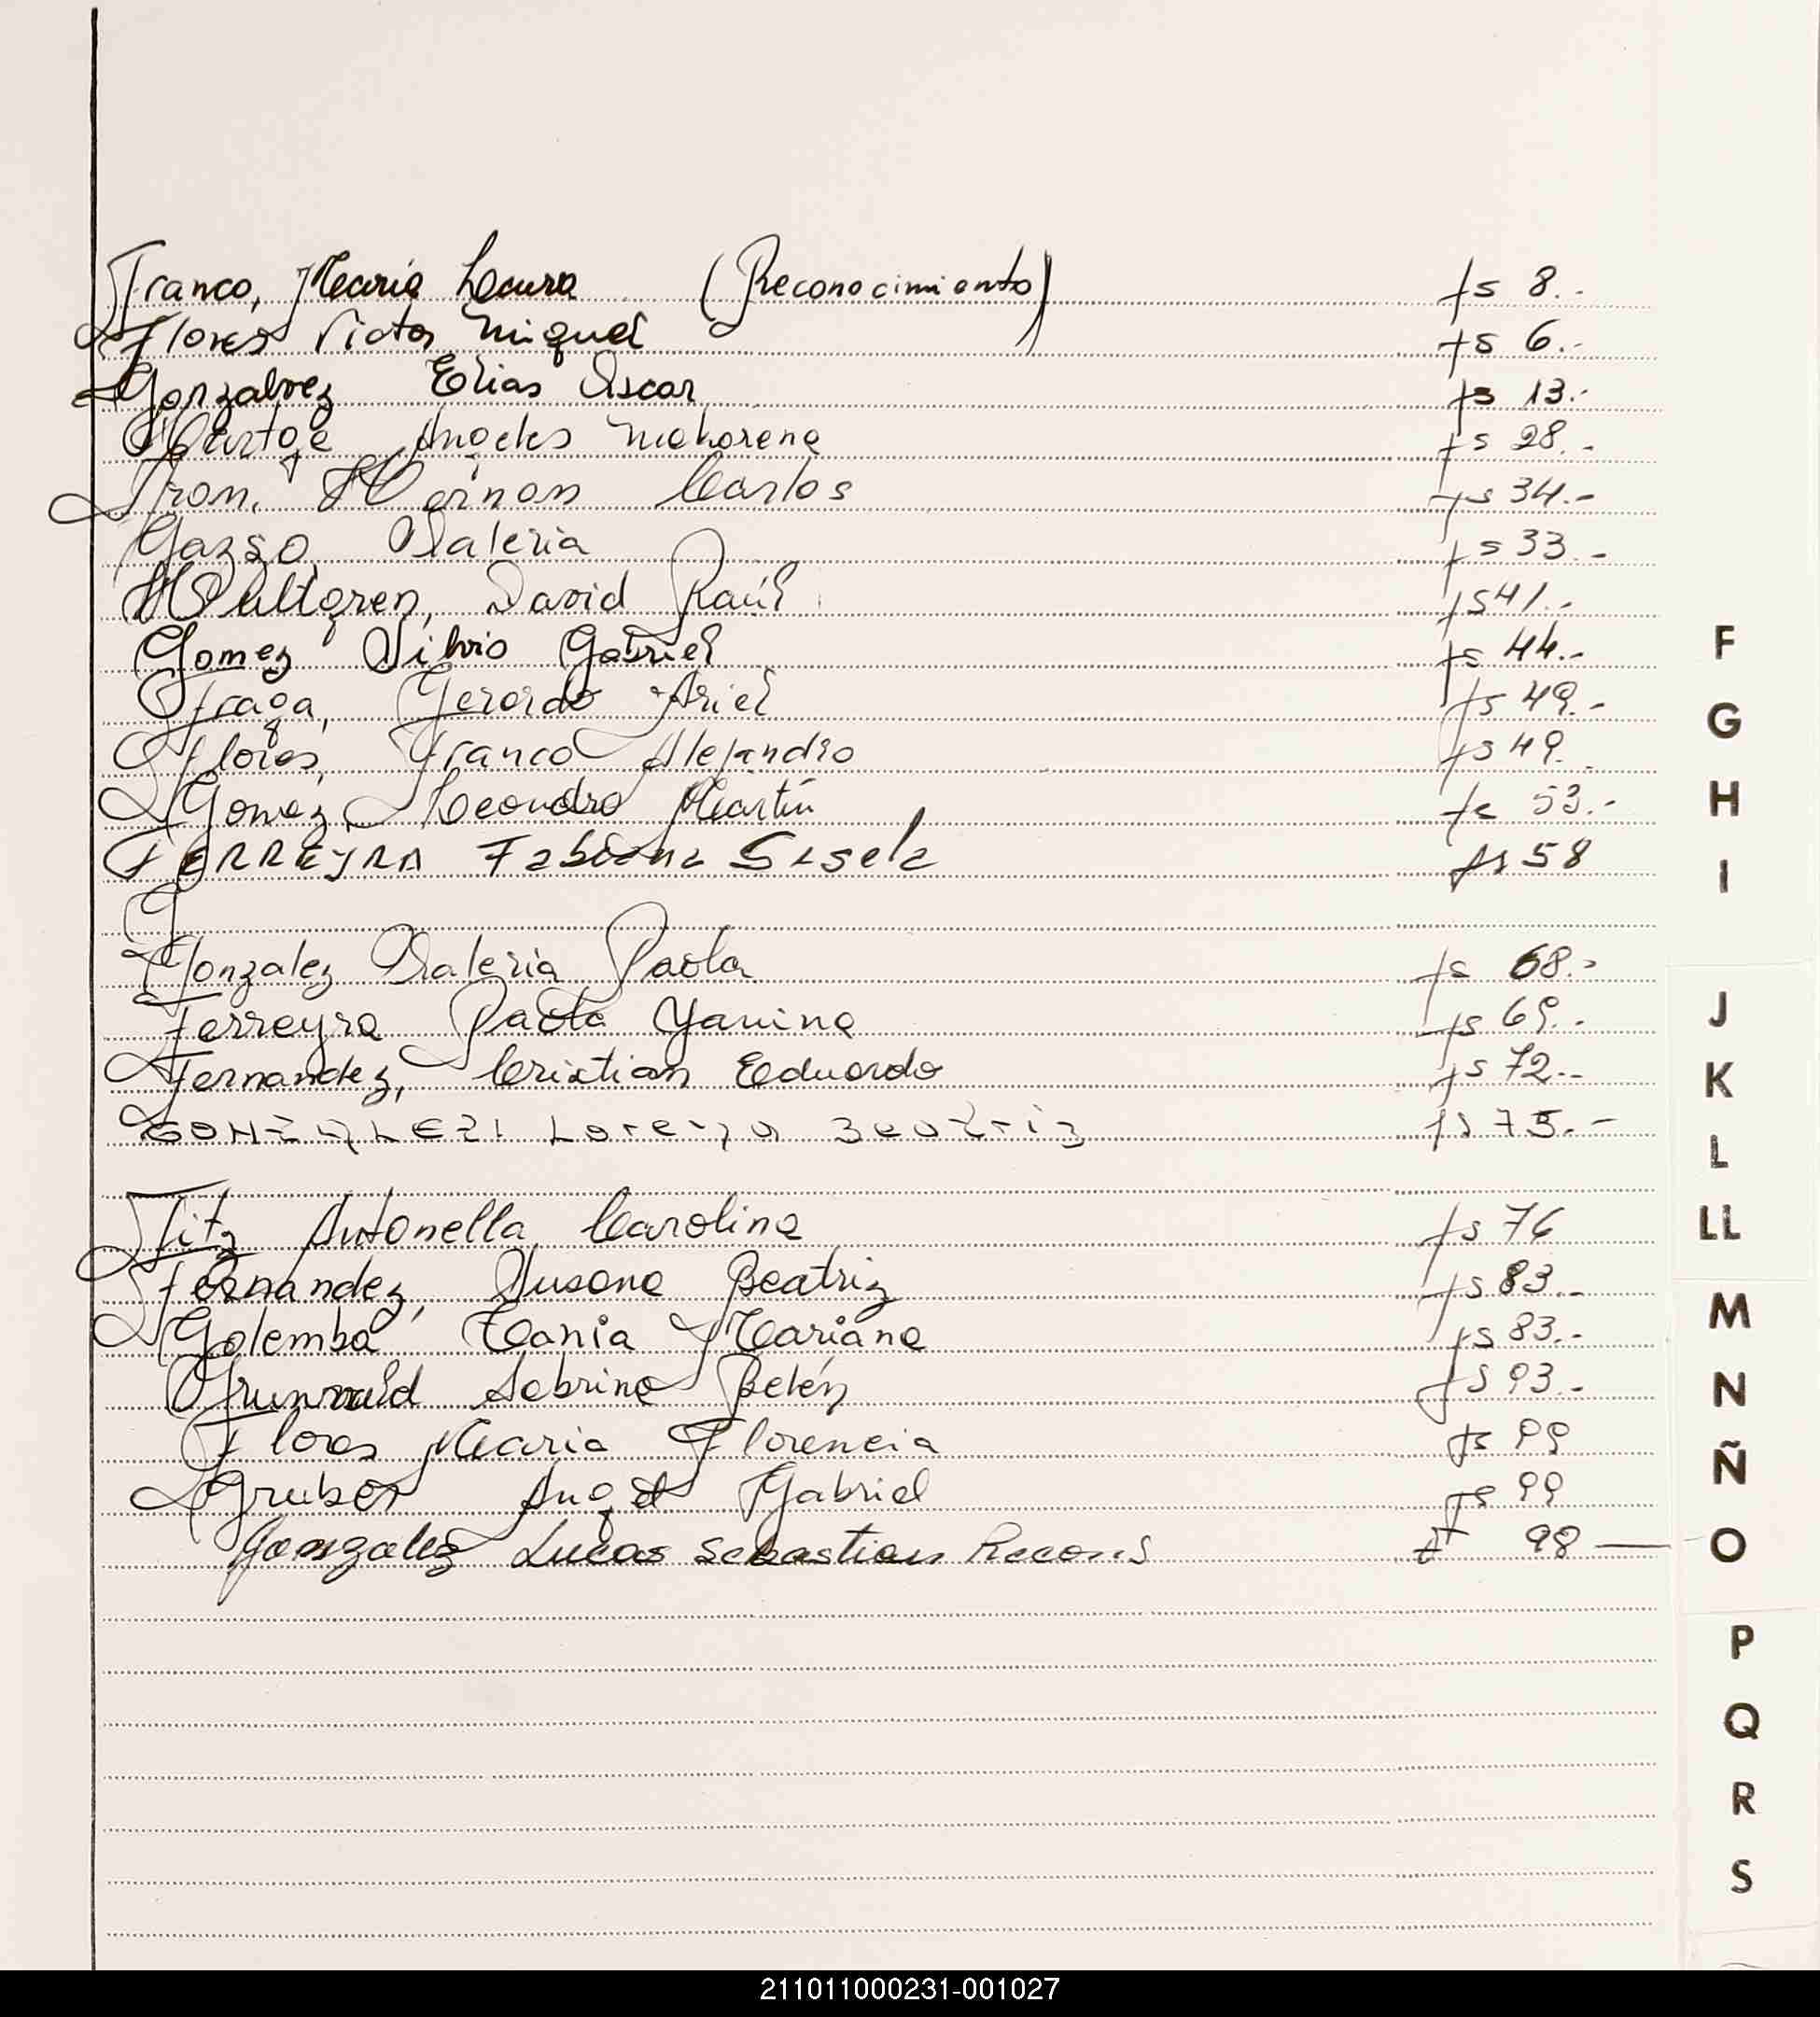 Franco, Maria Laura (Reconocimiento) fs 8.-
Flores Victor Miguel fs 6.-
Gonzalvez Elias Oscar fs 13.-
Angeles Makorena fs 28.-
Hernan Carlos fs 34.-
Gazso, Valeria fs 33.-
Hultgren, David Raúl fs 41.-
Gomez Silvio Gabriel fs 44.-
Fraga, Gerardo Ariel fs 49.-
Flores, Franco Alejandro fs 49.
Gomez, Leandro Martín fs 53.-
FERREYRA Fabiana Gisela fs 58
Gonzalez Valeria Paola fs 68.-
Ferreyra Paola Yanina fs 69.-
Fernandez, Cristian Eduardo fs 72.-
GONZALEZ Lorena Beatriz fs 75.-
Fitz Antonella Carolina fs 76
Fernandez, Susana Beatriz fs 83.-
Golemba Tania Mariana fs 83.-
Grunwald Sabrina Belén fs 93.-
Flores Maria Florencia fs 99
Gruber Angel Gabriel fs 99
Gonzalez Lucas Sebastian f 98
F
G
H
I
J
K
L
LL
M
N
Ñ
O
P
Q
R
S
211011000231-001027